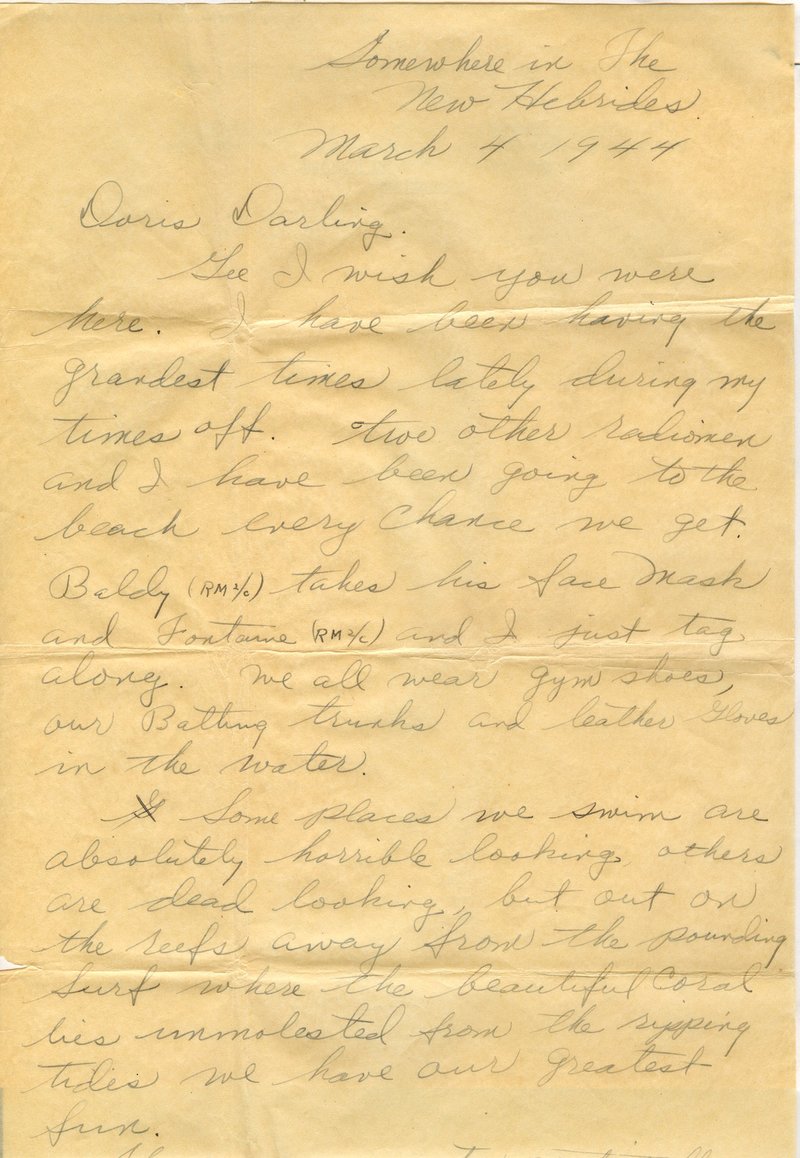 Somewhere in The
New Hebrides.
March 4 1944
Doris Darling.
Gee I wish you were
here. I have been having the
grandest times lately during my
times off. two other radiomen
and I have been going to the
beach every chance we get.
Baldy (RM 2/c) takes his face mask
and Fontaine (RM 2/c) and I just tag
along. We all wear gym shoes,
our Bathing trunks and leather Gloves
in the water.
Some places we swim are
absolutely horrible looking, others
are dead looking, but out on
the reefs away from the pounding
surf where the beautiful Coral
lies unmolested from the ripping
tides we have our greatest
fun.